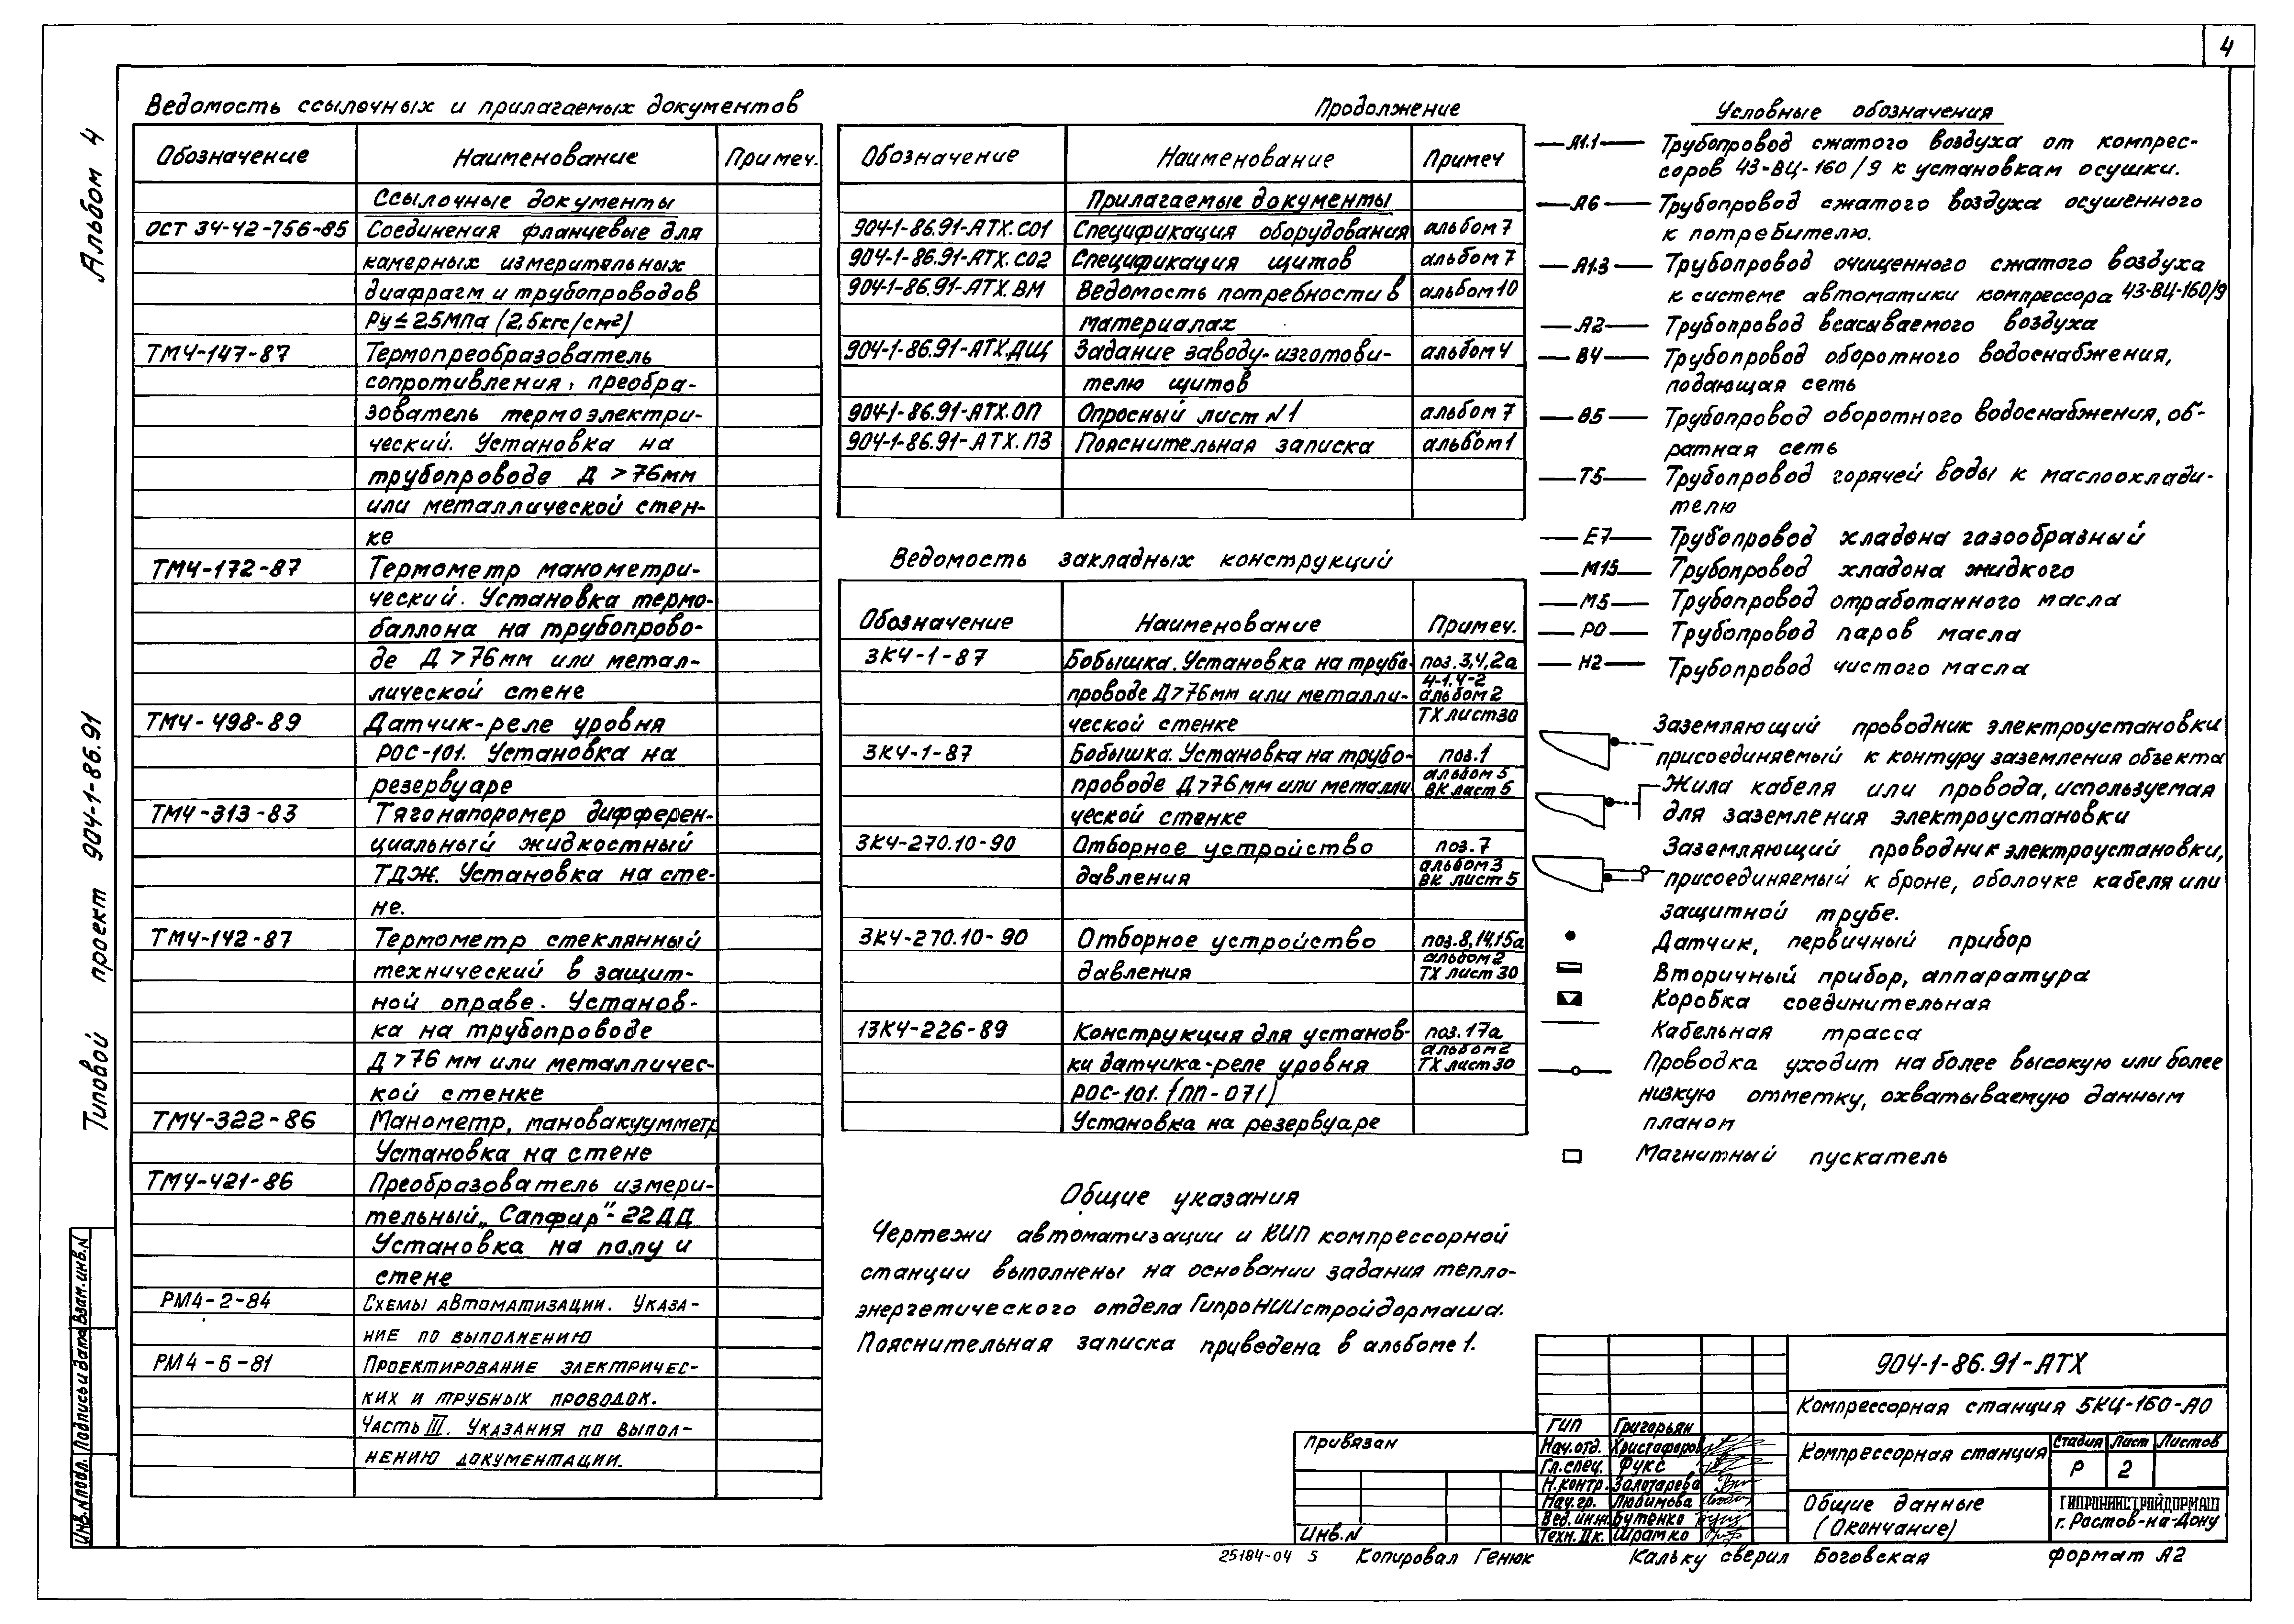 4
Альбом 4
Типовой проект 904-1-86.91
Ведомость ссылочных и прилагаемых документов
Обозначение Наименование Примеч.
Ссылочные документы
ОСТ 34-42-756-85 Соединения фланцевые для
камерных измерительных
диафрагм и трубопроводов
Ру≤25МПа (2,5кгс/см²)
ТМ4-147-87 Термопреобразователь
сопротивления, преобра-
зователь термоэлектри-
ческий. Установка на
трубопроводе Д >76мм
или металлической стен-
ке
ТМ4-172-87 Термометр манометри-
ческий. Установка термо-
баллона на трубопрово-
де Д >76мм или метал-
лической стене
ТМ4-498-89 Датчик-реле уровня
РОС-101. Установка на
резервуаре
ТМ4-313-83 Тягонапоромер дифферен-
циальный жидкостный
ТДЖ. Установка на сте-
не.
ТМ4-142-87 Термометр стеклянный
технический в защит-
ной оправе. Установ-
ка на трубопроводе
Д >76 мм или металличес-
кой стенке
ТМ4-322-86 Манометр, мановакуумметр
Установка на стене
ТМ4-421-86 Преобразователь измери-
тельный „Сапфир"-22ДД
Установка на полу и
стене
РМ4-2-84 Схемы автоматизации. Указа-
ние по выполнению
РМ4-6-81 Проектирование электричес-
ких и трубных проводок.
Часть III. Указания по выпол-
нению документации.
Продолжение
Обозначение Наименование Примеч
Прилагаемые документы
904-1-86.91-АТХ.СО1 Спецификация оборудования альбом 7
904-1-86.91-АТХ.СО2 Спецификация щитов альбом 7
904-1-86.91-АТХ.ВМ Ведомость потребности в альбом 10
материалах
904-1-86.91-АТХ.ДЩ Задание заводу-изготови- альбом 4
телю щитов
904-1-86.91-АТХ.ОП Опросный лист N1 альбом 7
904-1-86.91-АТХ.ПЗ Пояснительная записка альбом 1
Ведомость закладных конструкций
Обозначение Наименование Примеч.
ЗК4-1-87 Бобышка. Установка на трубо- поз.3,4,2а
4-1,4-2
проводе Д>76мм или металли- альбом 2
ческой стенке ТХ лист 30
ЗК4-1-87 Бобышка. Установка на трубо- поз.1
альбом 5
проводе Д>76мм или металли ВК лист 5
ческой стенке
ЗК4-270.10-90 Отборное устройство поз.7
альбом 3
давления ВК лист 5
ЗК4-270.10-90 Отборное устройство поз.8,14,15а
альбом 2
давления ТХ лист 30
13К4-226-89 Конструкция для установ- поз.17а
альбом 2
ки датчика-реле уровня ТХ лист 30
РОС-101. (ПП-071)
Установка на резервуаре
Общие указания
Чертежи автоматизации и КИП компрессорной
станции выполнены на основании задания тепло-
энергетического отдела ГипроНИИстройдормаша.
Пояснительная записка приведена в альбоме 1.
Условные обозначения
А1.1 Трубопровод сжатого воздуха от компрес-
соров 43-ВЦ-160/9 к установкам осушки.
А6 Трубопровод сжатого воздуха осушенного
к потребителю.
А1.3 Трубопровод очищенного сжатого воздуха
к системе автоматики компрессора 43-ВЦ-160/9
А2 Трубопровод всасываемого воздуха
В4 Трубопровод оборотного водоснабжения,
подающая сеть
В5 Трубопровод оборотного водоснабжения, об-
ратная сеть
Т5 Трубопровод горячей воды к маслоохлади-
телю
Е7 Трубопровод хладона газообразный
М15 Трубопровод хладона жидкого
М5 Трубопровод отработанного масла
РО Трубопровод паров масла
Н2 Трубопровод чистого масла
Заземляющий проводник электроустановки
присоединяемый к контуру заземления объекта
Жила кабеля или провода, используемая
для заземления электроустановки
Заземляющий проводник электроустановки,
присоединяемый к броне, оболочке кабеля или
защитной трубе.
Датчик, первичный прибор
Вторичный прибор, аппаратура
Коробка соединительная
Кабельная трасса
Проводка уходит на более высокую или более
низкую отметку, охватываемую данным
планом
Магнитный пускатель
904-1-86.91-АТХ
Компрессорная станция 5КЦ-160-АО
Компрессорная станция
Стадия Лист Листов
Р 2
Общие данные
(Окончание)
ГИПРОНИИСТРОЙДОРМАШ
г. Ростов-на-Дону
ГИП Григорьян
Нач.отд. Христофоров
Гл.спец. Фукс
Н.контр. Золотарева
Нач.гр. Любимова
Вед.инж. Бутенко
Техн.IIк. Шрамко
Привязан
Инв.N
Инв.N подл. Подпись и дата Взам.инв.N
25184-04 5 Копировал Генюк Кальку сверил Боговская формат А2